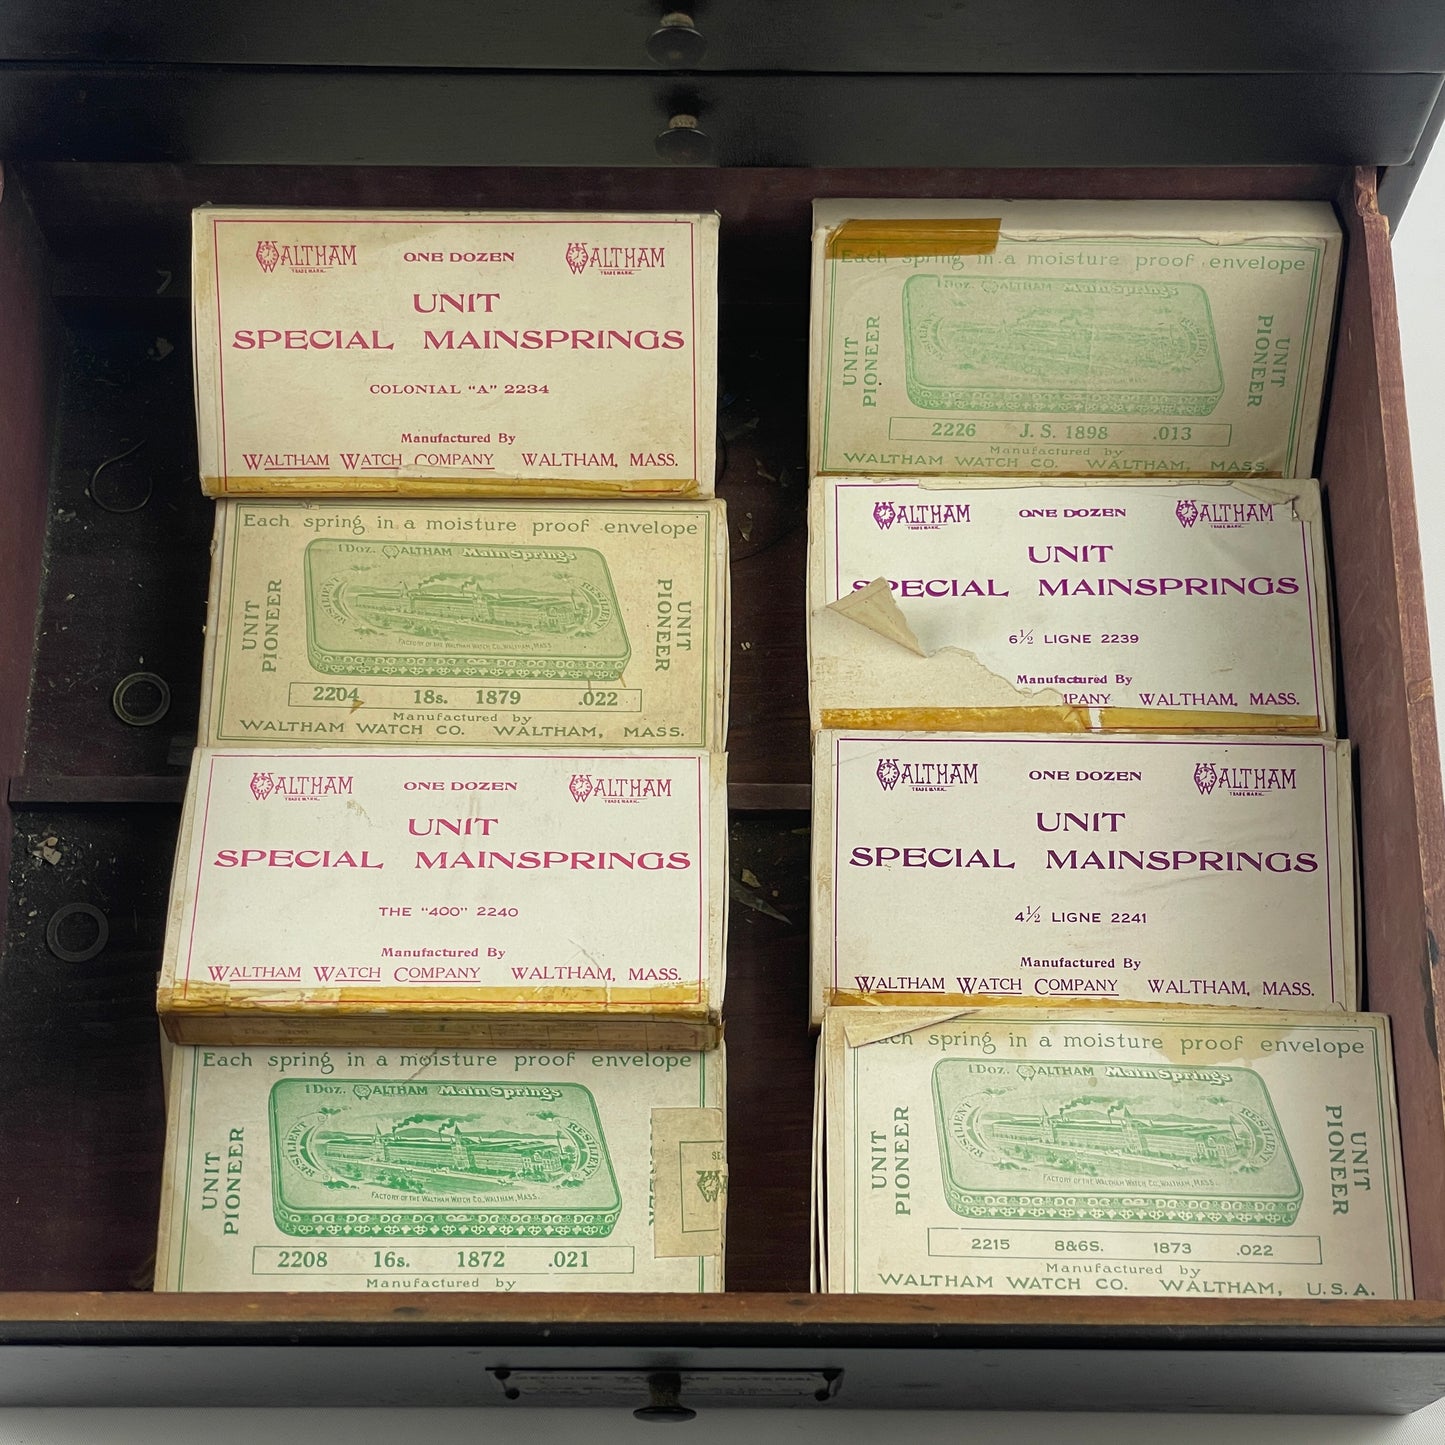 WALTHAM ONE DOZEN WALTHAM
TRADE MARK. TRADE MARK.
UNIT
SPECIAL MAINSPRINGS
COLONIAL "A" 2234
Manufactured By
WALTHAM WATCH COMPANY WALTHAM, MASS.
Each spring in a moisture proof envelope
1 Doz. WALTHAM MainSprings
RESILIENT RESILIENT
UNIT PIONEER
UNIT PIONEER
FACTORY OF THE WALTHAM WATCH CO., WALTHAM, MASS.
2204 18s. 1879 .022
Manufactured by
WALTHAM WATCH CO. WALTHAM, MASS.
WALTHAM ONE DOZEN WALTHAM
TRADE MARK. TRADE MARK.
UNIT
SPECIAL MAINSPRINGS
THE "400" 2240
Manufactured By
WALTHAM WATCH COMPANY WALTHAM, MASS.
Each spring in a moisture proof envelope
1 Doz. WALTHAM MainSprings
RESILIENT RESILIENT
UNIT PIONEER
FACTORY OF THE WALTHAM WATCH CO., WALTHAM, MASS.
2208 16s. 1872 .021
Manufactured by
Each spring in a moisture proof envelope
1 Doz. WALTHAM MainSprings
RESILIENT RESILIENT
UNIT PIONEER
UNIT PIONEER
2226 J. S. 1898 .013
Manufactured by
WALTHAM WATCH CO. WALTHAM, MASS.
WALTHAM ONE DOZEN WALTHAM
TRADE MARK. TRADE MARK.
UNIT
SPECIAL MAINSPRINGS
6½ LIGNE 2239
Manufactured By
MPANY WALTHAM, MASS.
WALTHAM ONE DOZEN WALTHAM
TRADE MARK. TRADE MARK.
UNIT
SPECIAL MAINSPRINGS
4½ LIGNE 2241
Manufactured By
WALTHAM WATCH COMPANY WALTHAM, MASS.
Each spring in a moisture proof envelope
1 Doz. WALTHAM MainSprings
RESILIENT RESILIENT
UNIT PIONEER
UNIT PIONEER
FACTORY OF THE WALTHAM WATCH CO., WALTHAM, MASS.
2215 8&6S. 1873 .022
Manufactured by
WALTHAM WATCH CO. WALTHAM, U.S.A.
GENUINE WALTHAM MATERIAL